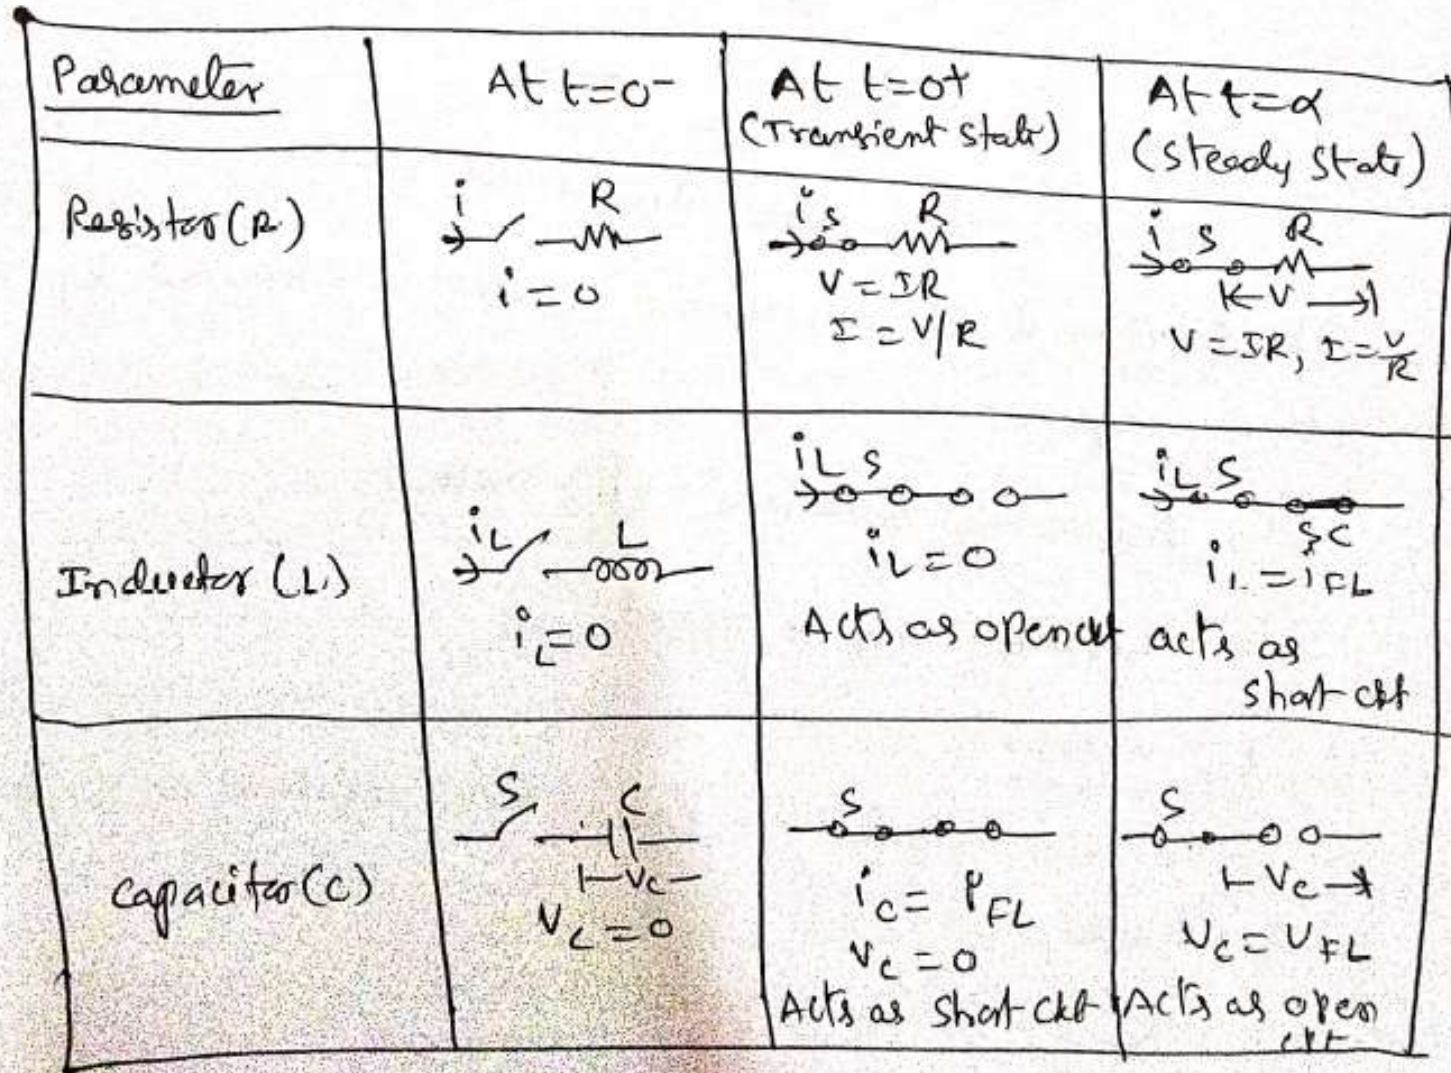 Parameter
At t=0-
At t=0+
(Transient State)
At t=α
(Steady State)
Resistor (R)
i R
i = 0
i S R
V = IR
I = V/R
i S R
V
V = IR, I = V/R
Inductor (L)
iL L
iL = 0
iL S
iL = 0
Acts as open ckt
iL S
SC
iL = iFL
acts as
short ckt
capacitor (C)
S C
Vc
Vc = 0
S
ic = iFL
Vc = 0
Acts as short ckt
S
Vc
Vc = VFL
Acts as open
ckt